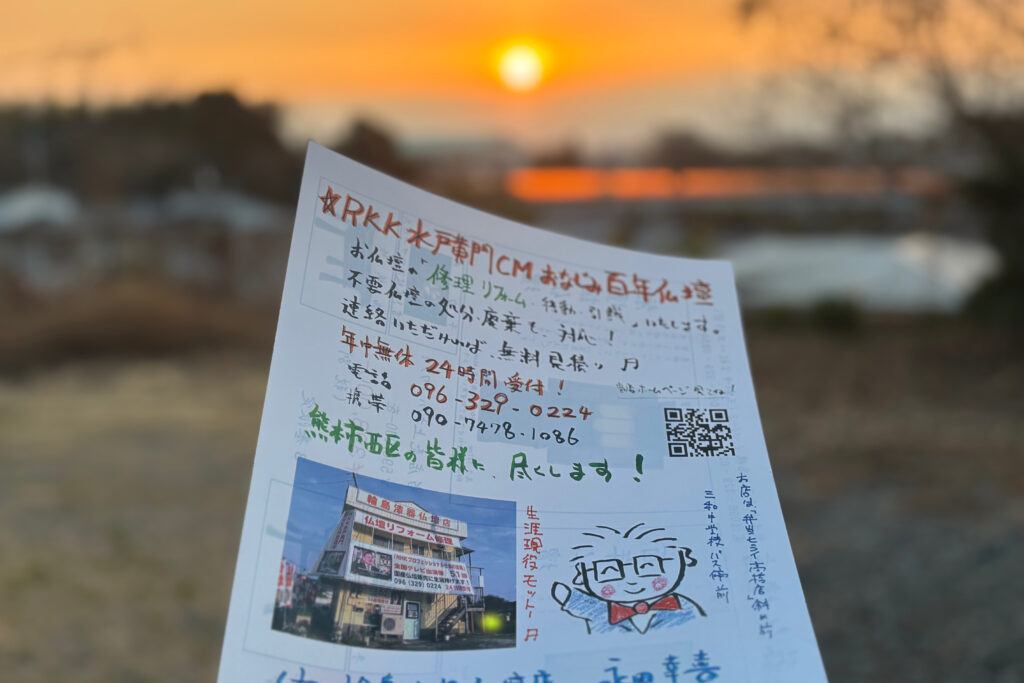 ☆RKK水戸黄門CMおなじみ百年仏壇
お仏壇の「修理リフォーム・移動・引越」いたします。
不要仏壇の処分、廃棄も、対応!
連絡いただければ、無料見積り♬
年中無休 24時間受付!
電話 096-329-0224
携帯 090-7478-1086
熊本市西区の皆様に、尽くします!
輪島漆器仏壇店
仏壇リフォーム修理
全国テレビ出演等 51回
096(329)0224
生涯現役モットー♬
三和中学校バス停前
永田幸喜